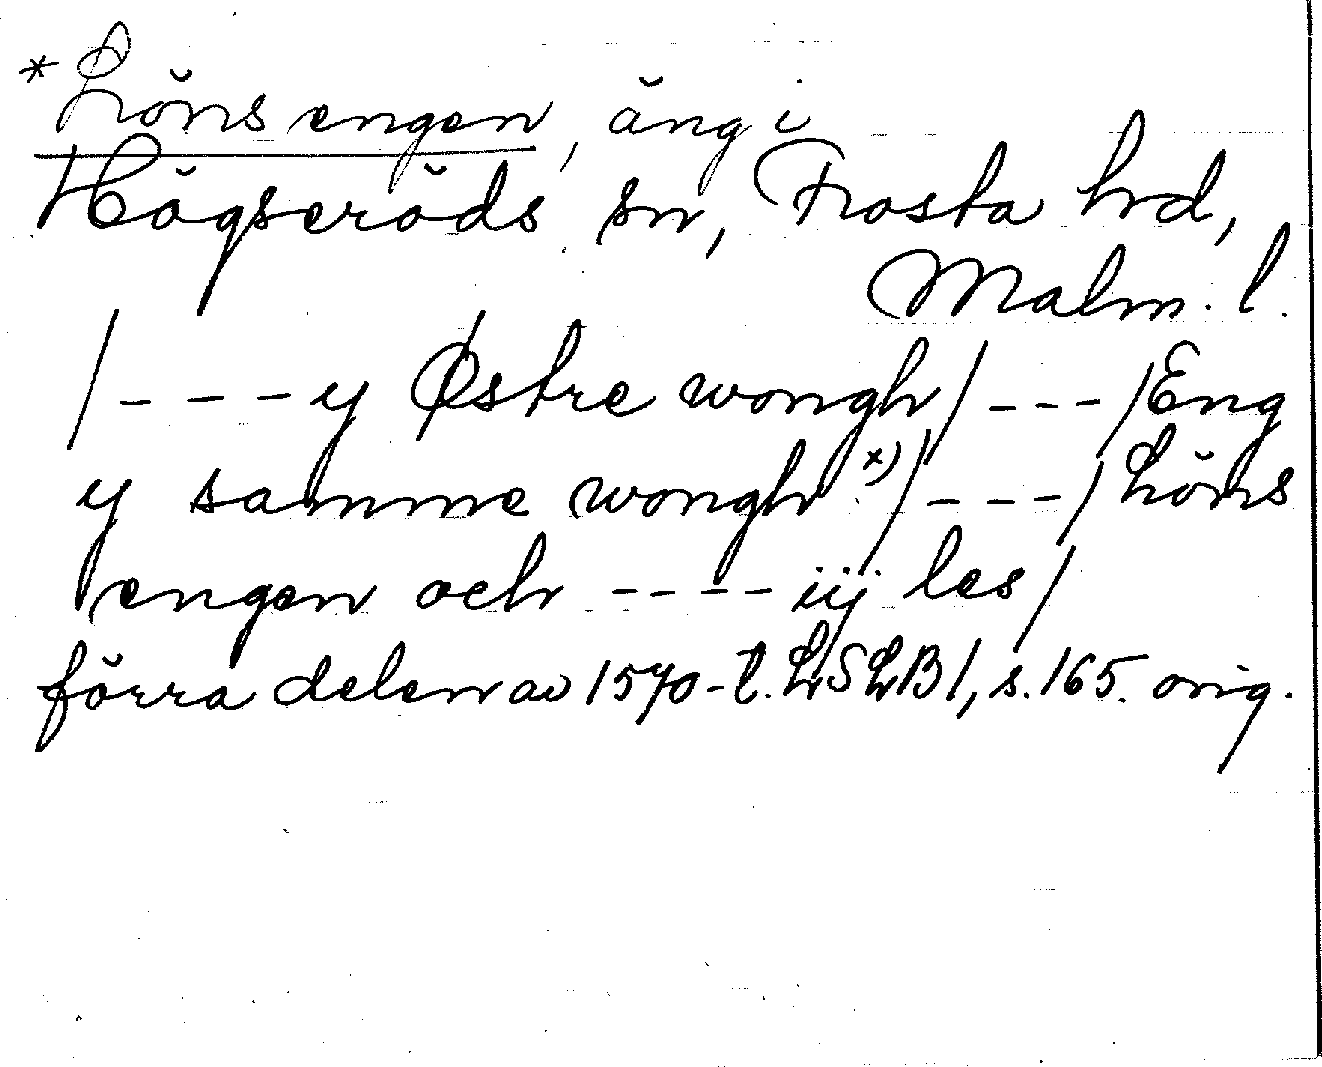 *Löns engen, äng i
Högseröds sn, Frosta hd,
Malm. l.
/---y Østre wongh/---/Eng
y samme wongh x)/---/Löns
engen och ---- iij les/
förra delen av 1570-t. LSLB 1, s. 165. orig.